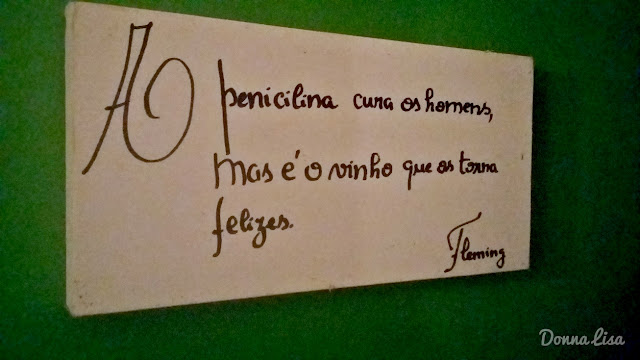 A penicilina cura os homens,
mas é o vinho que os torna
felizes.
Fleming
Donna Lisa